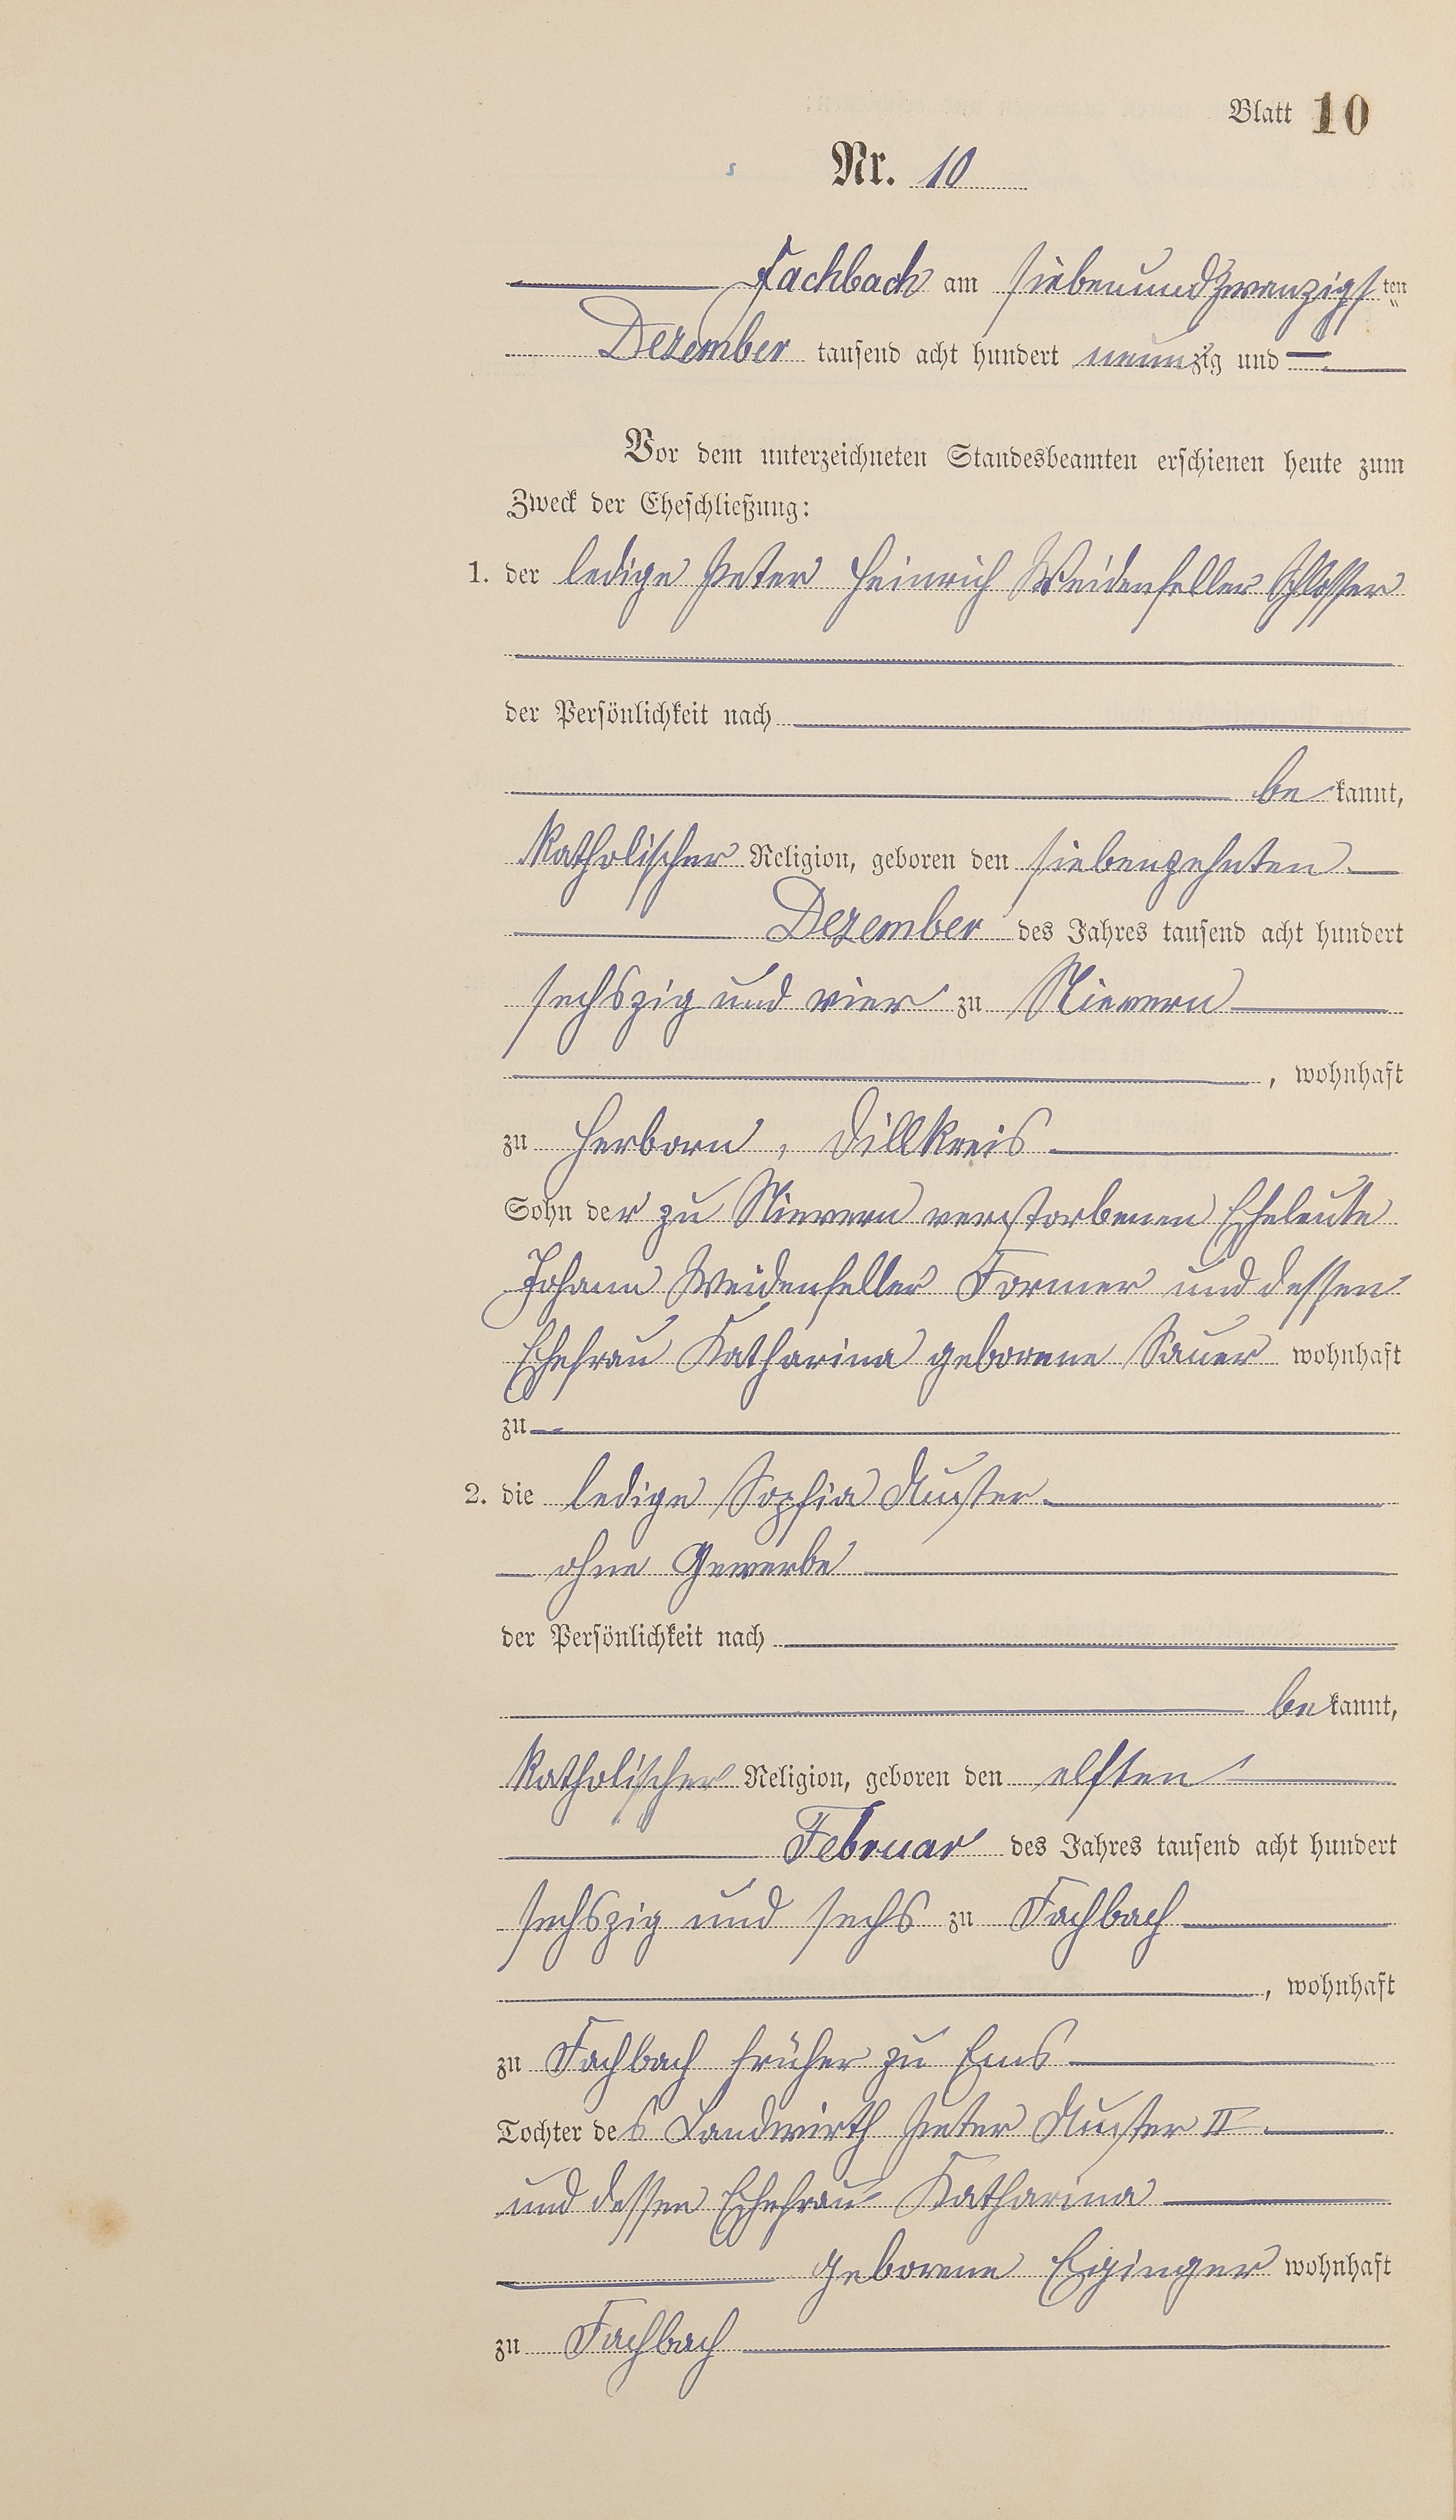 Blatt 10
Nr. 10
Fachbach am siebenundzwanzigsten
Dezember tausend acht hundert neunzig und
Vor dem unterzeichneten Standesbeamten erschienen heute zum
Zweck der Eheschließung:
1. der ledige Peter Heinrich Weidenfeller Schlosser
der Persönlichkeit nach
bekannt,
katholischer Religion, geboren den siebenzehnten
Dezember des Jahres tausend acht hundert
sechszig und vier zu Nievern
, wohnhaft
zu Herborn, Dillkreis
Sohn der zu Nievern verstorbenen Eheleute
Johann Weidenfeller Former und dessen
Ehefrau Katharina geborene Sauer wohnhaft
zu
2. die ledige Sophia Nuster
ohne Gewerbe
der Persönlichkeit nach
bekannt,
katholischer Religion, geboren den elften
Februar des Jahres tausend acht hundert
sechszig und sechs zu Fachbach
, wohnhaft
zu Fachbach früher zu Ems
Tochter des Landwirth Peter Nuster II
und dessen Ehefrau Katharina
geborene wohnhaft
zu Fachbach